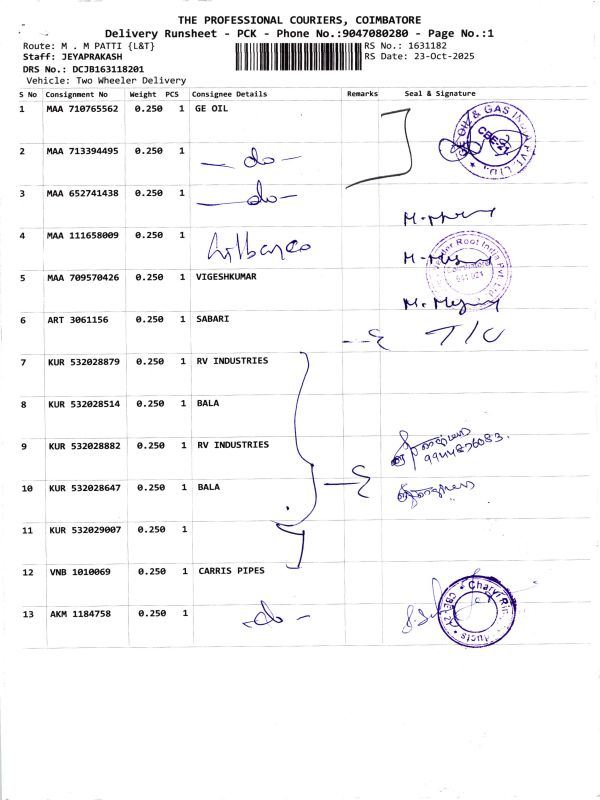 THE PROFESSIONAL COURIERS, COIMBATORE
Delivery Runsheet - PCK - Phone No.:9047080280 - Page No.:1
Route: M . M PATTI {L&T} RS No.: 1631182
Staff: JEYAPRAKASH RS Date: 23-Oct-2025
DRS No.: DCJB163118201
Vehicle: Two Wheeler Delivery
S No Consignment No Weight PCS Consignee Details Remarks Seal & Signature
1 MAA 710765562 0.250 1 GE OIL
2 MAA 713394495 0.250 1 — do —
3 MAA 652741438 0.250 1 — do —
4 MAA 111658009 0.250 1
5 MAA 709570426 0.250 1 VIGESHKUMAR
6 ART 3061156 0.250 1 SABARI
7 KUR 532028879 0.250 1 RV INDUSTRIES
8 KUR 532028514 0.250 1 BALA
9 KUR 532028882 0.250 1 RV INDUSTRIES
10 KUR 532028647 0.250 1 BALA
11 KUR 532029007 0.250 1
12 VNB 1010069 0.250 1 CARRIS PIPES
13 AKM 1184758 0.250 1 — do —